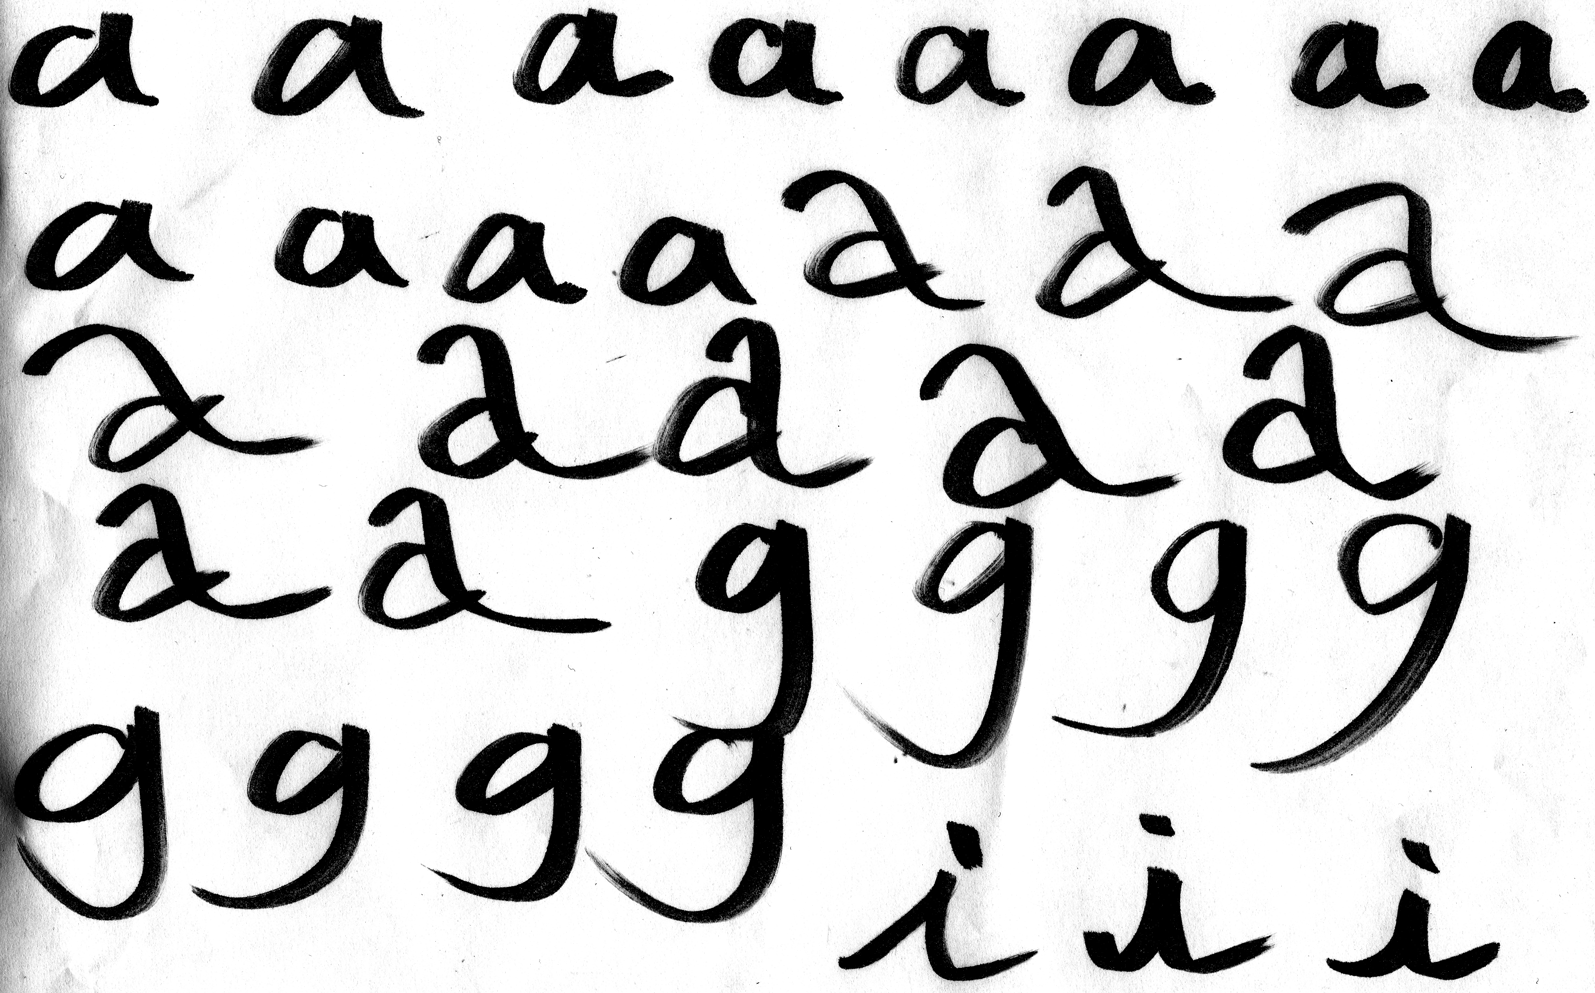 a a a a a a a a
a a a a a a a
a a a a a
a a g g g g
g g g g
i i i